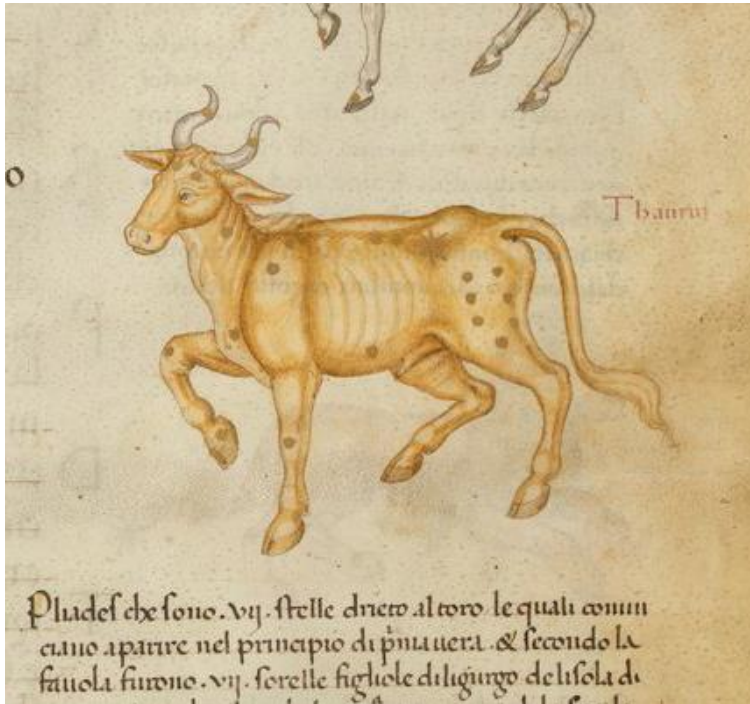 o
Thaurus
Pliades che sono .vij. stelle drieto al toro le quali comin
ciano aparire nel principio di p̄mauera . & secondo la
fauola furono .vij. sorelle figliole di ligurgo de lisola di